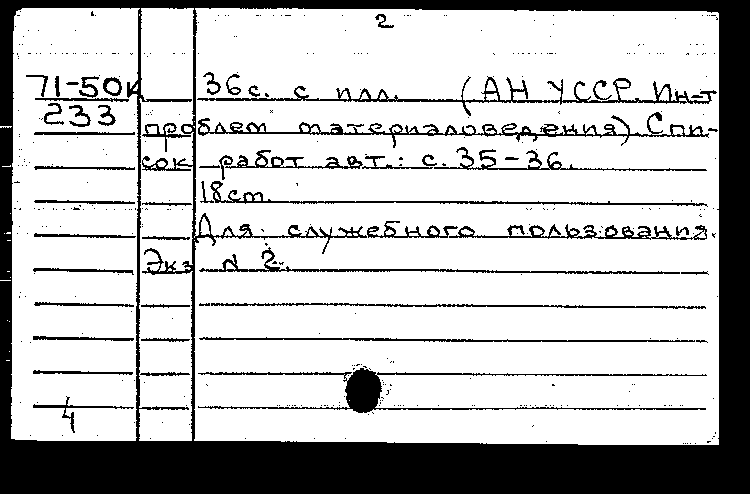 2
71-50к 36с. с илл. (АН УССР. Ин-т
233 проблем материаловедения). Спи-
сок работ авт.: с. 35-36.
18см.
Для служебного пользования.
Экз N 2.
4